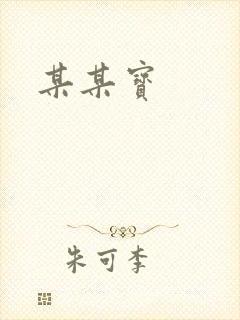 某某寶
朱可李